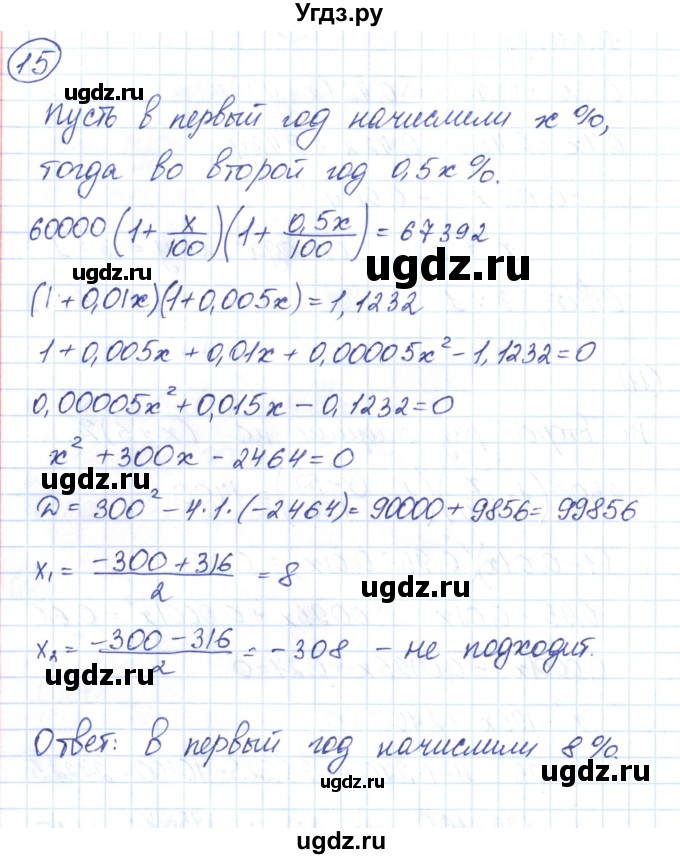 Угдз.ру
15
ugdz.ru
Пусть в первый год начислили x %,
тогда во второй год 0,5x %.
ugdz.ru
60000(1+x/100)(1+0,5x/100)=67392
ugdz.ru
ugdz.ru
(1+0,01x)(1+0,005x)=1,1232
1+0,005x+0,01x+0,00005x²-1,1232=0
0,00005x²+0,015x-0,1232=0
x²+300x-2464=0
ugdz.ru
ugdz.ru
D=300²-4·1·(-2464)=90000+9856=99856
x₁=(-300+316)/2=8
ugdz.ru
x₂=(-300-316)/2=-308 - не подходит.
ugdz.ru
Ответ: в первый год начислили 8%.
ugdz.ru
ugdz.ru
ugdz.ru